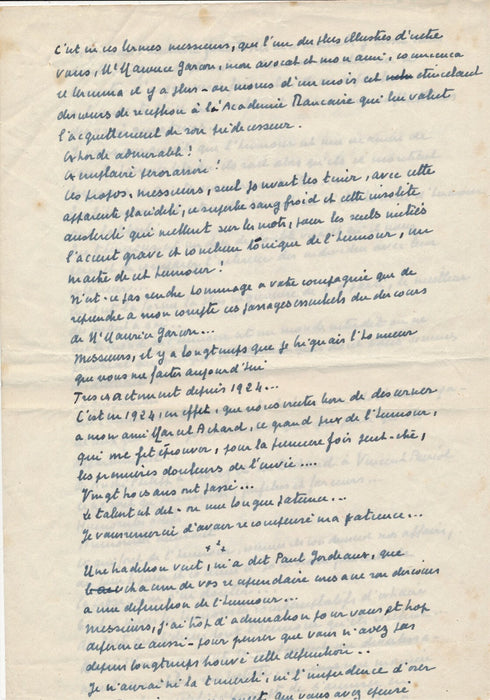 C'est en ces termes messieurs, que l'un des plus illustres d'entre
vous, Me Maurice Garçon, mon avocat et mon ami, commença
et termina il y a plus - ou moins d'un mois cet étincelant
discours de réception à l'Académie Française qui lui valut
l'acquittement de son prédécesseur.
Exorde admirable!
Exemplaire péroraison!
Ces propos, messieurs, seul pouvait les tenir, avec cette
apparente placidité, ce superbe sang froid et cette insolite
austérité qui mettent sur les mots, pour les seuls initiés
l'accent grave et combien tonique de l'humour, un
maître de cet humour!
N'est-ce pas rendre hommage à votre compagnie que de
reprendre à mon compte ces passages essentiels du discours
de Me Maurice Garçon...
Messieurs, il y a longtemps que je briguais l'honneur
que vous me faites aujourd'hui
Très exactement depuis 1924...
C'est en 1924, en effet, que vous voulûtes bien décerner
à mon ami Marcel Achard, ce grand prix de l'humour,
qui me fit éprouver, pour la première fois peut-être,
les premières douleurs de l'envie....
Vingt trois ans ont passé...
Le talent est dit-on une longue patience...
Je vous remercie d'avoir récompensé ma patience...
+ + +
Une tradition veut, m'a dit Paul Gordeaux, que
chacun de vos récipiendaires amène son discours
à une définition de l'humour...
Messieurs, j'ai trop d'admiration pour vous et trop
déférence aussi - pour penser que vous n'avez pas
depuis longtemps trouvé cette définition..
Je n'aurai ni la témérité, ni l'impudence d'oser
que vous avez épuisé